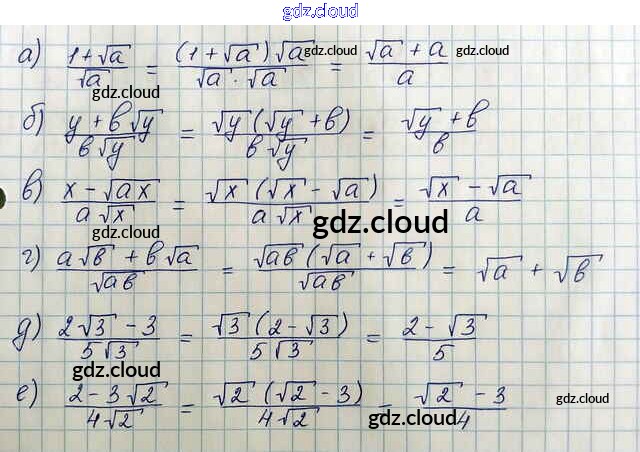 gdz.cloud
а) (1+√a)/√a = ((1+√a)√a)/(√a · √a) = (√a + a)/a gdz.cloud gdz.cloud
gdz.cloud
б) (y + b√y)/(b√y) = (√y(√y + b))/(b√y) = (√y + b)/b
в) (x − √ax)/(a√x) = (√x(√x − √a))/(a√x) = (√x − √a)/a
gdz.cloud gdz.cloud
г) (a√b + b√a)/√ab = (√ab(√a + √b))/√ab = √a + √b
д) (2√3 − 3)/(5√3) = (√3(2 − √3))/(5√3) = (2 − √3)/5
gdz.cloud gdz.cloud
е) (2 − 3√2)/(4√2) = (√2(√2 − 3))/(4√2) = (√2 − 3)/4 gdz.cloud
gdz.cloud gdz.cloud